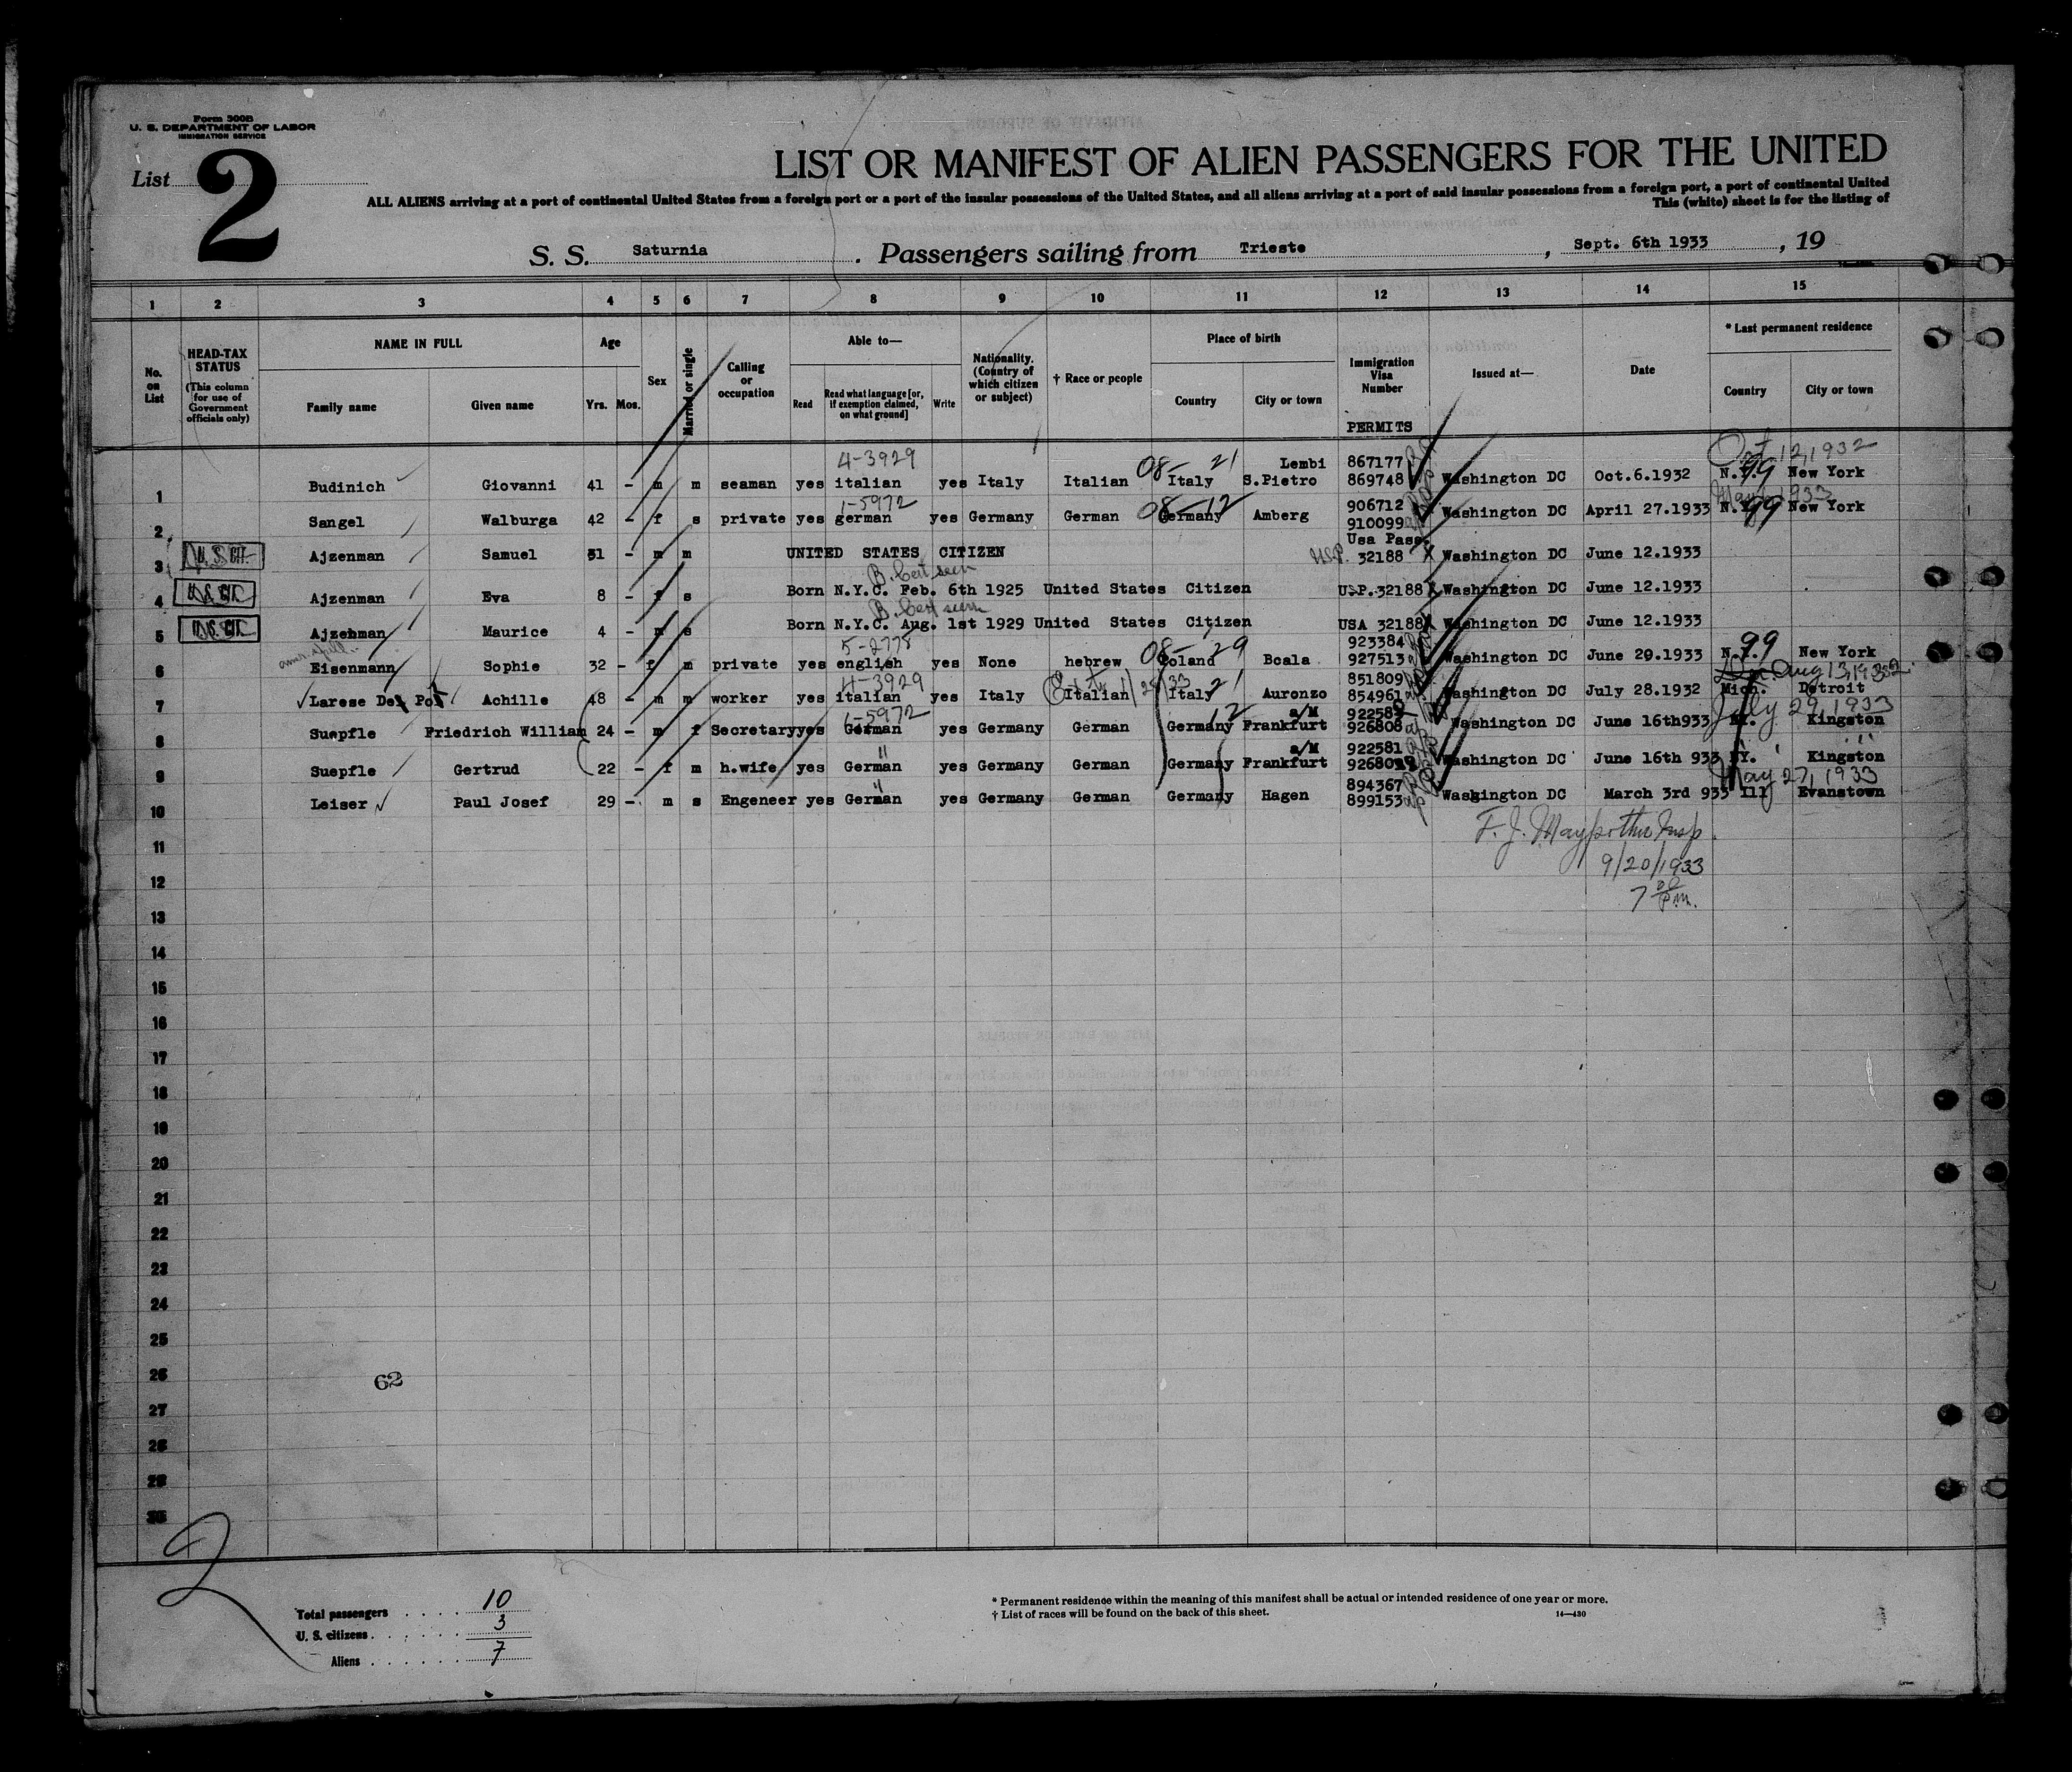 Form 500B
U. S. DEPARTMENT OF LABOR
IMMIGRATION SERVICE
List 2
LIST OR MANIFEST OF ALIEN PASSENGERS FOR THE UNITED
ALL ALIENS arriving at a port of continental United States from a foreign port or a port of the insular possessions of the United States, and all aliens arriving at a port of said insular possessions from a foreign port, a port of continental United
This (white) sheet is for the listing of
S. S. Saturnia . Passengers sailing from Trieste , Sept. 6th 1933 , 19
1 2 3 4 5 6 7 8 9 10 11 12 13 14 15
No. on List
HEAD-TAX STATUS (This column for use of Government officials only)
NAME IN FULL
Family name Given name
Age
Yrs. Mos.
Sex
Married or single
Calling or occupation
Able to—
Read Read what language [or, if exemption claimed, on what ground] Write
Nationality. (Country of which citizen or subject)
† Race or people
Place of birth
Country City or town
Immigration Visa Number
PERMITS
Issued at—
Date
* Last permanent residence
Country City or town
4-3929 08- 21 Lembi 867177 Oct 12, 1932
1 Budinich Giovanni 41 - m m seaman yes italian yes Italy Italian Italy S.Pietro 869748 Washington DC Oct.6.1932 N.Y. 99 New York
1-5972 08-12 906712
2 Sangel Walburga 42 - f s private yes german yes Germany German Germany Amberg 910099 Washington DC April 27.1933 N.Y. 99 New York
Usa Pass.
3 U. S. CIT. Ajzenman Samuel 31 - m m UNITED STATES CITIZEN USP. 32188 Washington DC June 12.1933
B. Cert seen
4 U. S. CIT. Ajzenman Eva 8 - f s Born N.Y.C. Feb. 6th 1925 United States Citizen U.P. 32188 Washington DC June 12.1933
B. Cert seen
5 U. S. CIT. Ajzenman Maurice 4 - m s Born N.Y.C. Aug. 1st 1929 United States Citizen USA 32188 Washington DC June 12.1933
5-2775 08- 29 923384
6 Eisenmann Sophie 32 - f m private yes english yes None hebrew Poland Bcala 927513 Washington DC June 29.1933 N.Y. 99 New York
4-3929 21 851809 Aug 13, 1932
7 Larese Del Pol Achille 48 - m m worker yes italian yes Italy Italian Italy Auronzo 854961 Washington DC July 28.1932 Mich. Detroit
6-5972 12 a/M 922582 July 29, 1933
8 Suepfle Friedrich William 24 - m f Secretary yes German yes Germany German Germany Frankfurt 926808 Washington DC June 16th933 NY. Kingston
" a/M 922581 " "
9 Suepfle Gertrud 22 - f m h.wife yes German yes Germany German Germany Frankfurt 926809 Washington DC June 16th 933 NY. Kingston
" 894367 May 27, 1933
10 Leiser Paul Josef 29 - m s Engeneer yes German yes Germany German Germany Hagen 899153 Washington DC March 3rd 933 Ill Evanstown
F. J. Insp.
9/20/1933
7 00 P.m.
11
12
13
14
15
16
17
18
19
20
21
22
23
24
25
26
62
27
28
29
30
2
Total passengers . . . . 10
U. S. citizens . . . . . . 3
Aliens . . . . . . 7
* Permanent residence within the meaning of this manifest shall be actual or intended residence of one year or more.
† List of races will be found on the back of this sheet.
14—430